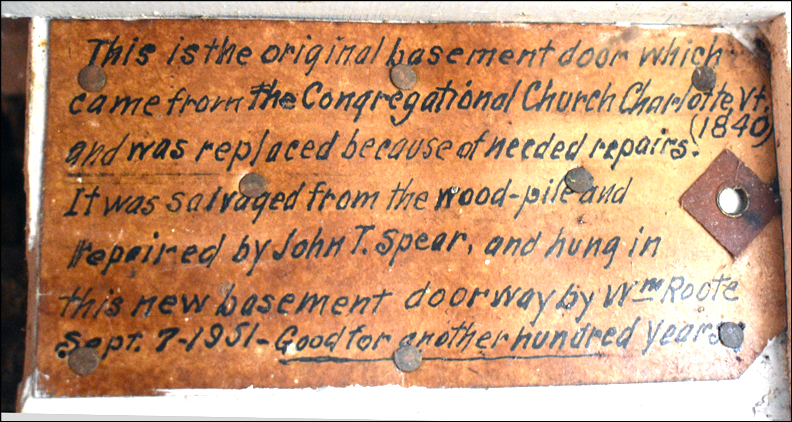 This is the original basement door which
came from the Congregational Church Charlotte, Vt.
(1840)
and was replaced because of needed repairs.
It was salvaged from the wood-pile and
repaired by John T. Spear, and hung in
this new basement doorway by Wm Roote
Sept. 7-1951- Good for another hundred years.